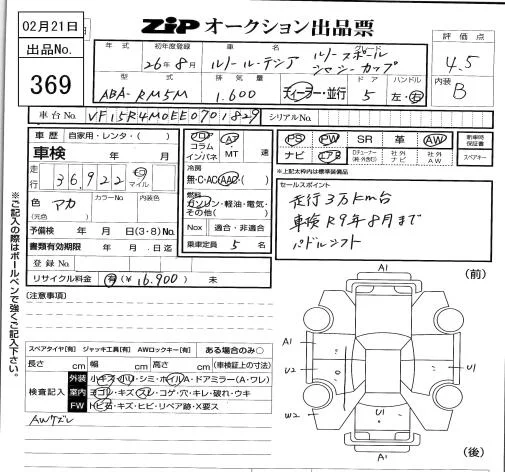 02月21日
ZIP オークション出品票
出品No.
369
年式
初年度登録
車名
グレード
評価点
26年8月
ルノー・ルーテシア
ルノースポール
シャシーカップ
4.5
型式
排気量
ドア
ハンドル
ABA-RM5M
1.600
ディーラー・並行
5
左・右
内装
B
車台No.
VF15R4M0EE0701829
シリアルNo.
車歴
自家用・レンタ・( )
車検
年 月
フロア
コラム
インパネ
AT
MT
速
PS
PW
SR
革
AW
新車時
保証書
ナビ
エアB
Dチューナー
(純・外含む)
社外
ナビ
社外
AW
スペアキー
走行
36,922
km
マイル
冷房
無・C・AC・AAC・( )
※上記太枠内は標準装備品
セールスポイント
走行3万km台
車検R9年8月まで
パドルシフト
色
アカ
(元色)
カラーNo
内装色
燃料
ガソリン・軽油・電気・
その他( )
予備検 年 月 日(3・8)Mo
Nox
適合・非適合
書類有効期限 年 月 日迄
乗車定員
5
名
登録No
リサイクル料金
有(¥16,900) 未
(注意事項)
※ご記入の際はボールペンで強くご記入下さい。
(前)
A1
A1
U2
W2
U1
U1
A1
(後)
スペアタイヤ[有] ジャッキ工具[有] AWロックキー[有] ある場合のみ○
長さ cm 幅 cm 高さ cm (車検証上の寸法)
検査記入
外装
小キズ・小凹・シミ・ホイル(A・ドアミラー(A・ワレ)
室内
ヨゴレ・キズ・スレ・コゲ・穴・キレ・破れ・ウキ
FW
トビ石・キズ・ヒビ・リペア跡・X要ス
AWケズレ